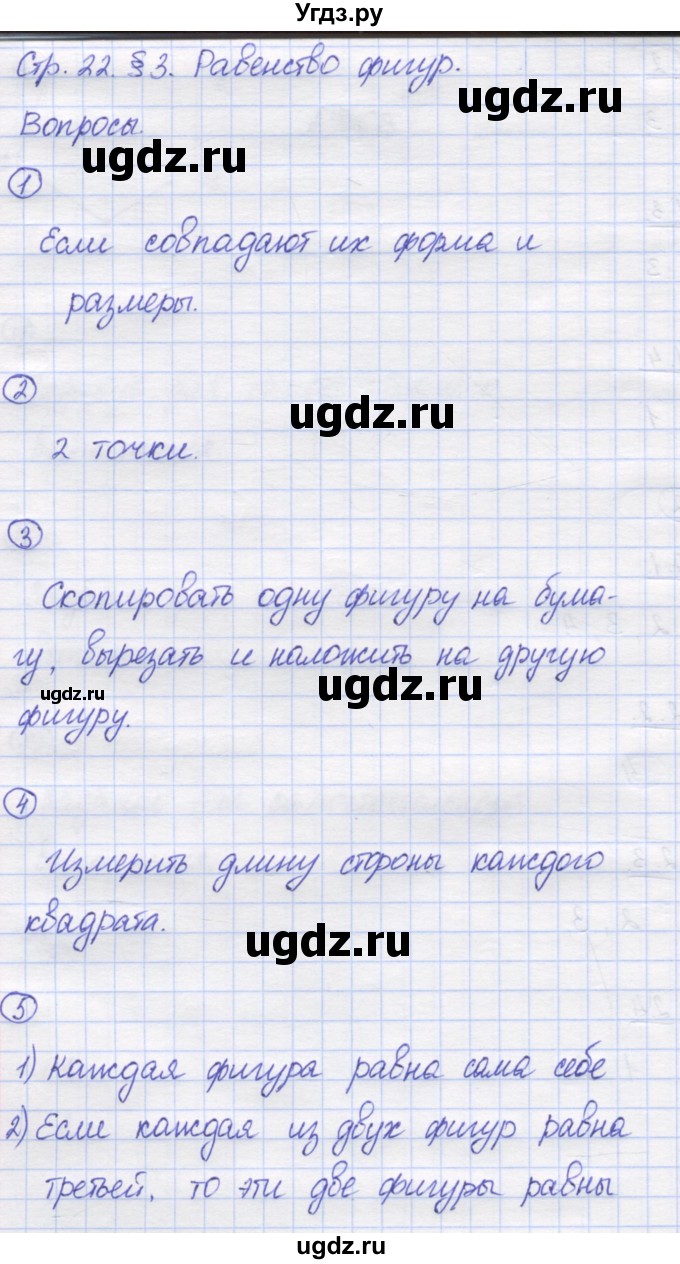 Угдз.ру
Стр. 22. § 3. Равенство фигур.
ugdz.ru
Вопросы.
ugdz.ru
1
Если совпадают их форма и
размеры.
2
ugdz.ru
2 точки.
3
Скопировать одну фигуру на бума-
гу, вырезать и наложить на другую
ugdz.ru
ugdz.ru
фигуру.
4
Измерить длину стороны каждого
квадрата.
ugdz.ru
5
1) Каждая фигура равна сама себе
2) Если каждая из двух фигур равна
третьей, то эти две фигуры равны
ugdz.ru